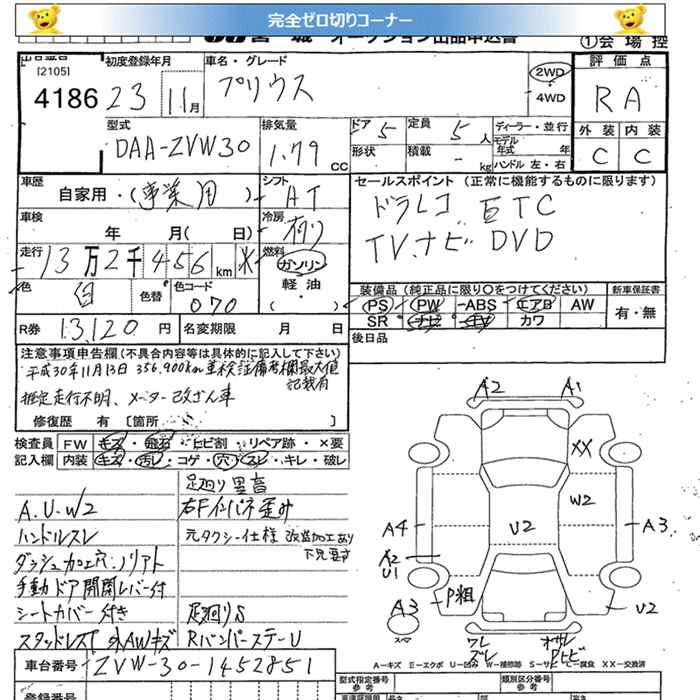 完全ゼロ切りコーナー
宮城 オークション出品申込書 ①会場控
[2105] 初度登録年月 車名・グレード 評価点
4186 23年 11月 プリウス 2WD・4WD RA
型式 排気量 ドア 5 定員 5人 ディーラー・並行 外装 内装
DAA-ZVW30 1.79cc 形状 積載 - kg モデル年式 年 ハンドル 左・右 C C
車歴 自家用・(事業用) シフト AT セールスポイント (正常に機能するものに限ります)
車検 年 月( 日) 冷房 有り ドラレコ ETC
走行 13万2千456km 燃料 ガソリン・軽油・( TV.ナビ DVD
色 白 色替 色コード 070 装備品 (純正品に限り○をつけてください) 新車保証書
PS・PW・ABS・エアB AW 有・無
R券 13,120円 名変期限 月 日 SR ナビ・TV カワ
後日品
注意事項申告欄 (不具合内容等は具体的に記入して下さい)
平成30年11月13日 356,900km 車検証備考欄最大値
記載有
推定走行不明、メーター改ざん車
修復歴 有 〔箇所 〕
検査員 FW キズ・飛石・ヒビ割・リペア跡・×要
記入欄 内装 キズ・汚レ・コゲ・穴・スレ・キレ・破レ
足廻り異音
A.U.W2 右Fインパネ歪み
ハンドルスレ 元タクシー仕様 改造加工あり
ダッシュ加工穴.ノリアト 下見要す
手動ドア開閉レバー付
シートカバー付き 足廻りS
スタッドレスT 外AWキズ RバンパーステーU
A2 A1
XX
W2
A4 U2 A3
A2
U1
P粗
A3 U2
スペア
ワレ オサレ
ズレ Pトビ
A－キズ E－エクボ U－凹み W－補修跡 S－サビ 腐食 XX－交換済
車台番号 ZVW-30-1452851
型式指定番号 参考 類別区分番号 参考
登録番号 長さ